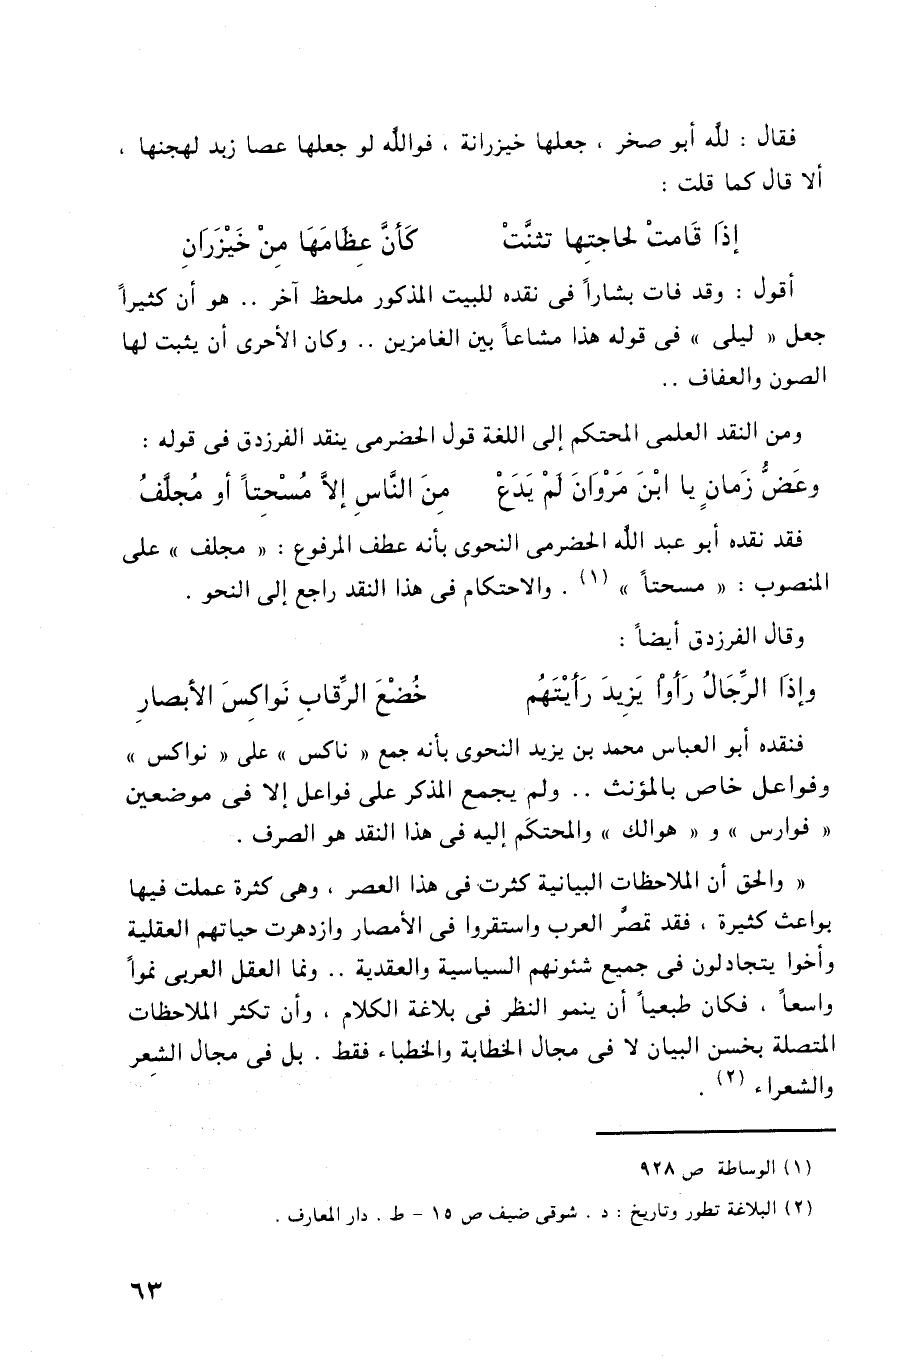 فقال : لله أبو صخر ، جعلها خيزرانة ، فوالله لو جعلها عصا زبد لهجنها ،
ألا قال كما قلت :
إذَا قَامتْ لحاجتِها تثنَّتْ كَأنَّ عِظَامَهَا مِنْ خَيْزَرَانِ
أقول : وقد فات بشاراً فى نقده للبيت المذكور ملحظ آخر .. هو أن كثيراً
جعل « ليلى » فى قوله هذا مشاعاً بين الغامزين .. وكان الأحرى أن يثبت لها
الصون والعفاف ..
ومن النقد العلمى المحتكم إلى اللغة قول الحضرمى ينقد الفرزدق فى قوله :
وعَضُّ زَمانٍ يا ابْنَ مَرْوَانَ لَمْ يَدَعْ مِنَ النَّاسِ إلاَّ مُسْحتاً أو مُجلَّفُ
فقد نقده أبو عبد الله الحضرمى النحوى بأنه عطف المرفوع : « مجلف » على
المنصوب : « مسحتاً » (١) . والاحتكام فى هذا النقد راجع إلى النحو .
وقال الفرزدق أيضاً :
وإذَا الرِّجَالُ رَأوْا يَزِيدَ رَأيْتَهُم خُضْعَ الرِّقابِ نَواكِسَ الأبصارِ
فنقده أبو العباس محمد بن يزيد النحوى بأنه جمع « ناكس » على « نواكس »
وفواعل خاص بالمؤنث .. ولم يجمع المذكر على فواعل إلا فى موضعين
« فوارس » و « هوالك » والمحتكَم إليه فى هذا النقد هو الصرف .
« والحق أن الملاحظات البيانية كثرت فى هذا العصر ، وهى كثرة عملت فيها
بواعث كثيرة ، فقد تمصَّر العرب واستقروا فى الأمصار وازدهرت حياتهم العقلية
وأخوا يتجادلون فى جميع شئونهم السياسية والعقدية .. ونما العقل العربى نمواً
واسعاً ، فكان طبعياً أن ينمو النظر فى بلاغة الكلام ، وأن تكثر الملاحظات
المتصلة بخسن البيان لا فى مجال الخطابة والخطباء فقط . بل فى مجال الشعر
والشعراء (٢) .
(١) الوساطة ص ٩٢٨
(٢) البلاغة تطور وتاريخ : د . شوقى ضيف ص ١٥ – ط . دار المعارف .
٦٣